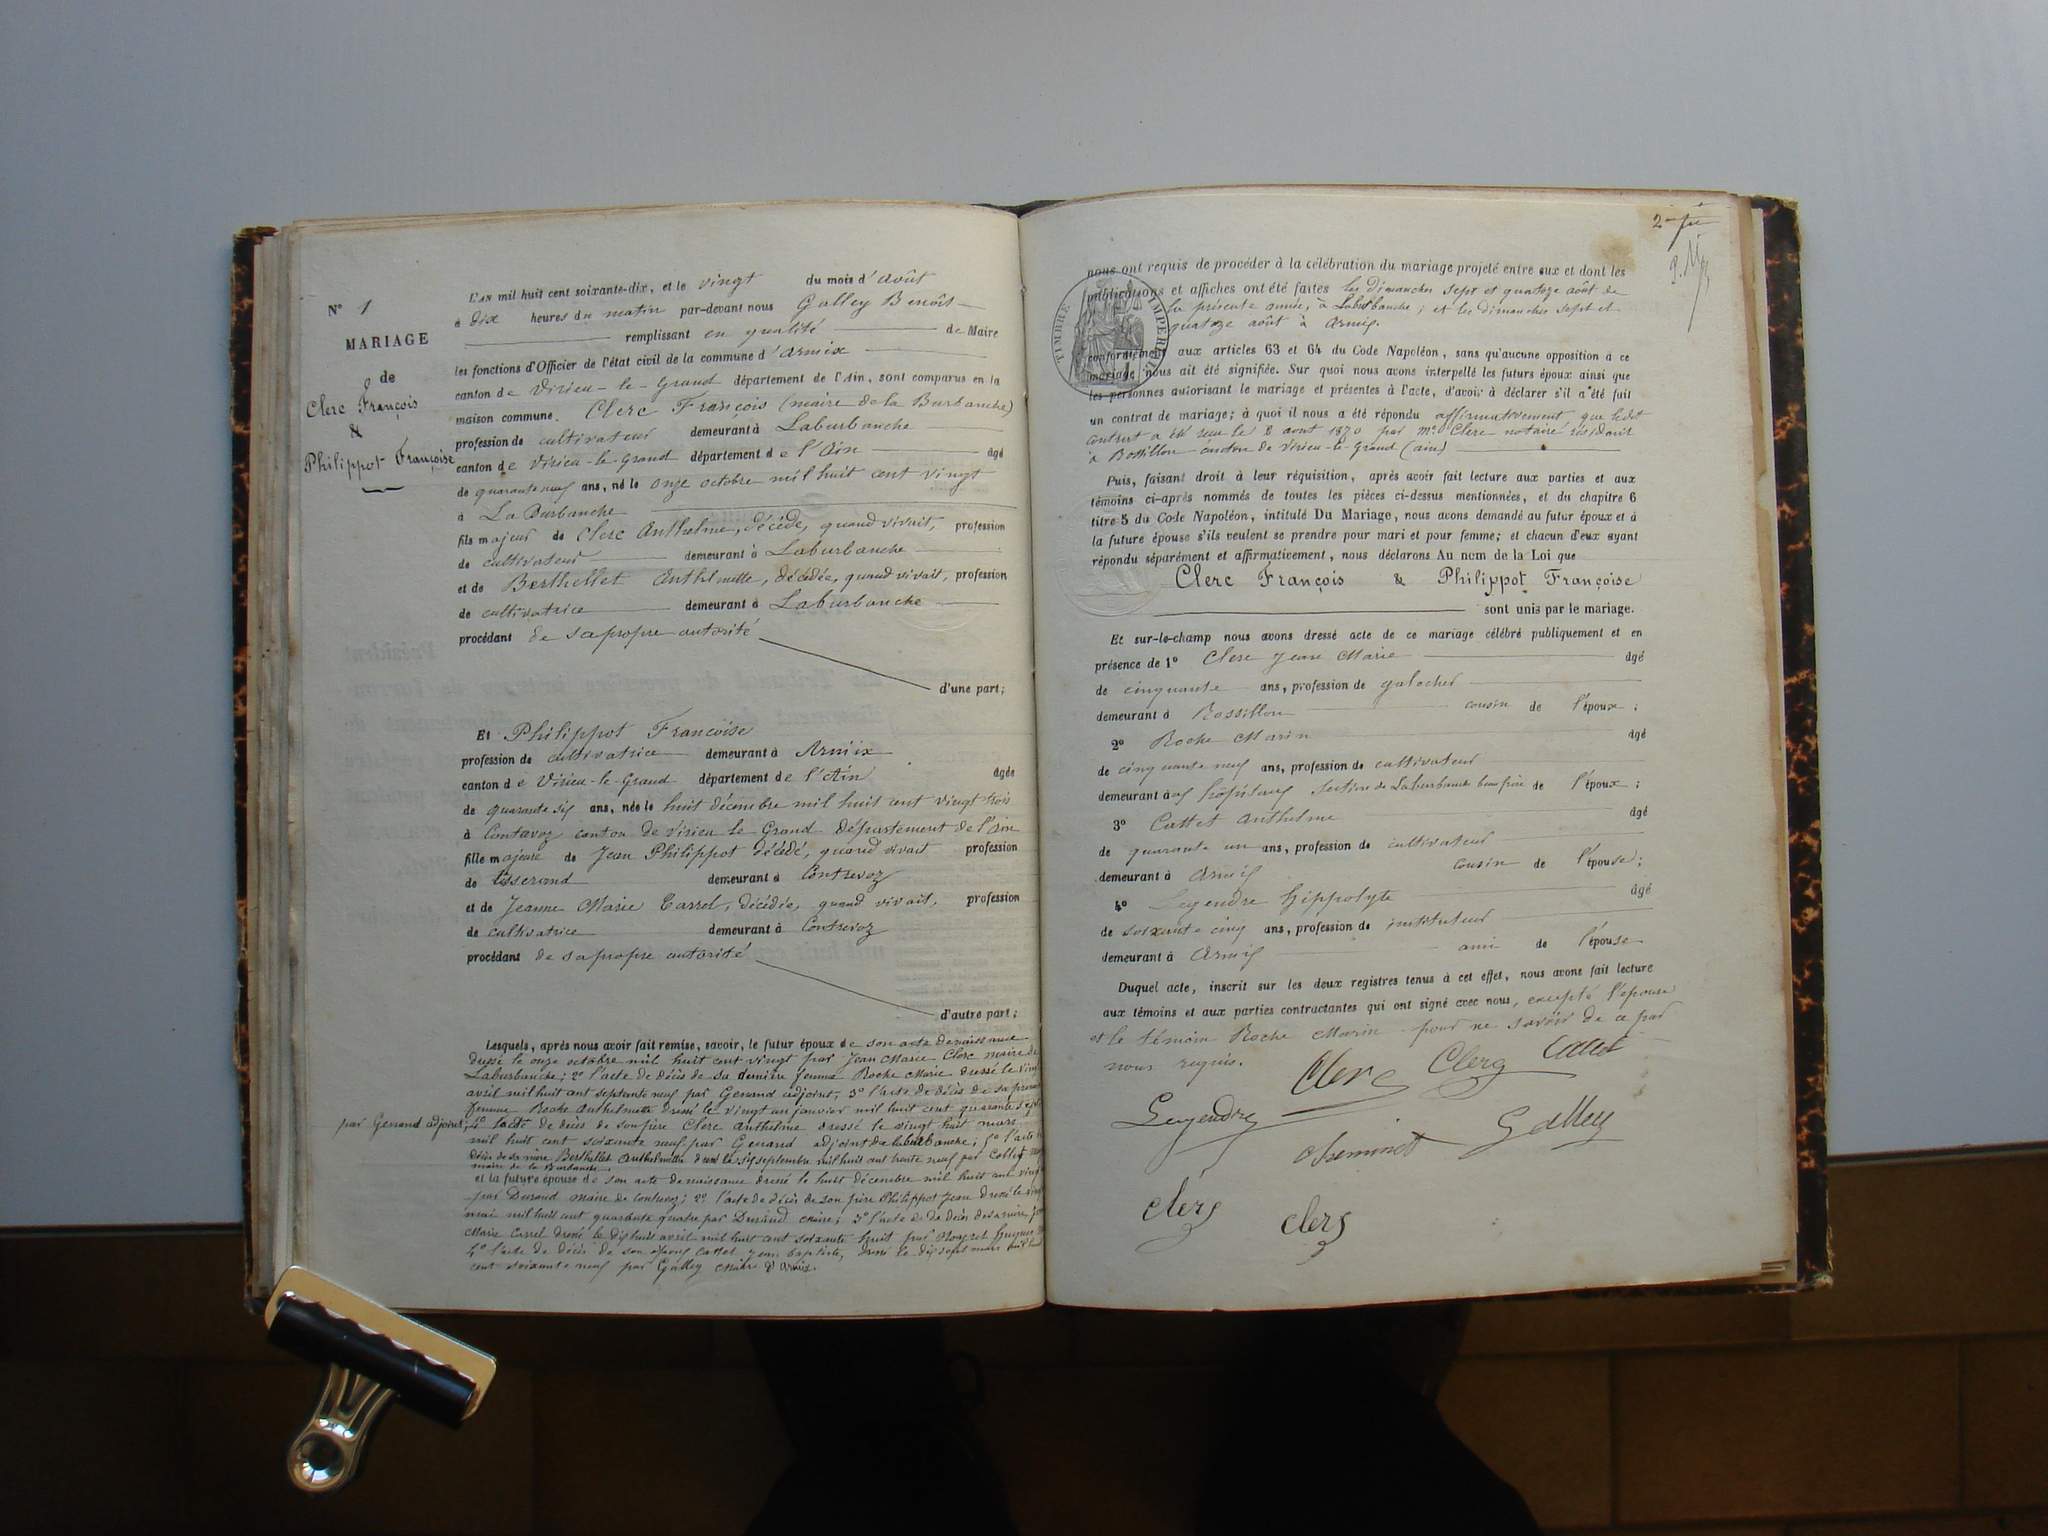 N° 1
MARIAGE
de
Clerc François
&
Philippot Françoise
L'AN mil huit cent soixante-dix, et le vingt du mois d'août
à dix heures du matin par-devant nous Galley Benoît
remplissant en qualité de Maire
les fonctions d'Officier de l'état civil de la commune d'Armix
canton de Virieu-le-Grand département de l'Ain, sont comparus en la
maison commune. Clerc François (maire de la Burbanche)
profession de cultivateur demeurant à Laburbanche
canton de Virieu-le-Grand département de l'Ain âgé
de quarante neuf ans, né le onze octobre mil huit cent vingt
à La Burbanche
fils majeur de Clerc Anthelme, décédé, quand vivait, profession
de cultivateur demeurant à Laburbanche
et de Berthellet Anthelmette, décédée, quand vivait, profession
de cultivatrice demeurant à Laburbanche
procédant de sa propre autorité
d'une part;
Et Philippot Françoise
profession de cultivatrice demeurant à Armix
canton de Virieu-le-Grand département de l'Ain âgée
de quarante six ans, née le huit décembre mil huit cent vingt trois
à Contrevoz canton de Virieu le Grand département de l'Ain
fille majeure de Jean Philippot décédé, quand vivait profession
de tisserand demeurant à Contrevoz
et de Jeanne Marie Carrel, décédée, quand vivait, profession
de cultivatrice demeurant à Contrevoz
procédant de sa propre autorité
d'autre part;
Lesquels, après nous avoir fait remise, savoir, le futur époux de son acte de naissance
dressé le onze octobre mil huit cent vingt par Jean Marie Clerc maire de
Laburbanche; 2° l'acte de décès de sa dernière femme Roche Marie dressé le vingt
avril mil huit cent septante neuf par Gerrand adjoint; 3° l'acte de décès de sa première
femme Roche Anthelmette dressé le vingt un janvier mil huit cent quarante sept
par Gerrand adjoint; 4° l'acte de décès de son père Clerc Anthelme dressé le vingt huit mars
mil huit cent soixante neuf par Gerrand adjoint de laburbanche; 5° l'acte de
décès de sa mère Berthellet Anthelmette dressé le six septembre mil huit cent trente neuf par Collet
maire de la Burbanche
et la future épouse de son acte de naissance dressé le huit décembre mil huit cent vingt
par Durand maire de Contrevoz; 2° l'acte de décès de son père Philippot Jean dressé le vingt
mai mil huit cent quarante quatre par Durand maire; 3° l'acte de décès de sa mère
Marie Carrel dressé le dix huit avril mil huit cent soixante huit par
4° l'acte de décès de son époux Cattet Jean Baptiste, dressé le dix sept mars mil huit
cent soixante neuf par Galley maire d'Armix.
2
TIMBRE IMPERIAL
nous ont requis de procéder à la célébration du mariage projeté entre eux et dont les
publications et affiches ont été faites les dimanches sept et quatorze août de
la présente année, à Laburbanche; et les dimanches sept et
quatorze août à Armix.
conformément aux articles 63 et 64 du Code Napoléon, sans qu'aucune opposition à ce
mariage nous ait été signifiée. Sur quoi nous avons interpellé les futurs époux ainsi que
les personnes autorisant le mariage et présentes à l'acte, d'avoir à déclarer s'il a été fait
un contrat de mariage; à quoi il nous a été répondu affirmativement que ledit
contrat a été reçu le 8 aout 1870 par me Clerc notaire résidant
à Rossillon canton de Virieu-le-Grand (ain)
Puis, faisant droit à leur réquisition, après avoir fait lecture aux parties et aux
témoins ci-après nommés de toutes les pièces ci-dessus mentionnées, et du chapitre 6
titre 5 du Code Napoléon, intitulé Du Mariage, nous avons demandé au futur époux et à
la future épouse s'ils veulent se prendre pour mari et pour femme; et chacun d'eux ayant
répondu séparément et affirmativement, nous déclarons Au nom de la Loi que
Clerc François & Philippot Françoise
sont unis par le mariage.
Et sur-le-champ nous avons dressé acte de ce mariage célébré publiquement et en
présence de 1° Clerc Jean Marie âgé
de cinquante ans, profession de galocher
demeurant à Rossillon cousin de l'époux;
2° Roche Marin âgé
de cinquante neuf ans, profession de cultivateur
demeurant aux hôpitaux section de Laburbanche beau frère de l'époux;
3° Cattet Anthelme âgé
de quarante un ans, profession de cultivateur
demeurant à Armix cousin de l'épouse;
4° Legendre Hippolyte âgé
de soixante cinq ans, profession de instituteur
demeurant à Armix ami de l'épouse
Duquel acte, inscrit sur les deux registres tenus à cet effet, nous avons fait lecture
aux témoins et aux parties contractantes qui ont signé avec nous, excepté l'épouse
et le témoin Roche Marin pour ne savoir de ce par
nous requis.
Clerc Clerc Cattet
Legendre
Galley
clerc clerc